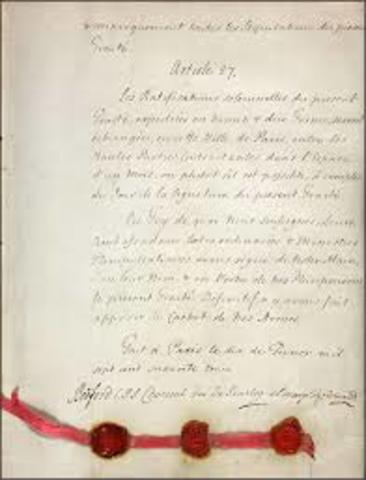 toutes les Stipulations du présent
Traité.
Article 27.
Les Ratifications solemnelles du présent
Traité, expediées en bonne & due Forme, seront
échangées, en cette Ville de Paris, entre les
Hautes Parties Contractantes dans l'Espace
d'un Mois, ou plutôt s'il est possible, à compter
du Jour de la Signature du présent Traité.
En Foy de quoi Nous soussignés, Leurs
Ambassadeurs Extraordinaires & Ministres
Plenipotentiaires avons signé de Notre Main,
en leur Nom, & en Vertu de nos Pleinpouvoirs
le présent Traité Definitif, & y avons fait
apposer le Cachet de nos Armes.
Fait à Paris le dix de Fevrier mil
sept cent soixante trois.
Bedford C.P.S. Choiseul duc de Praslin el Marq. de Grimaldi